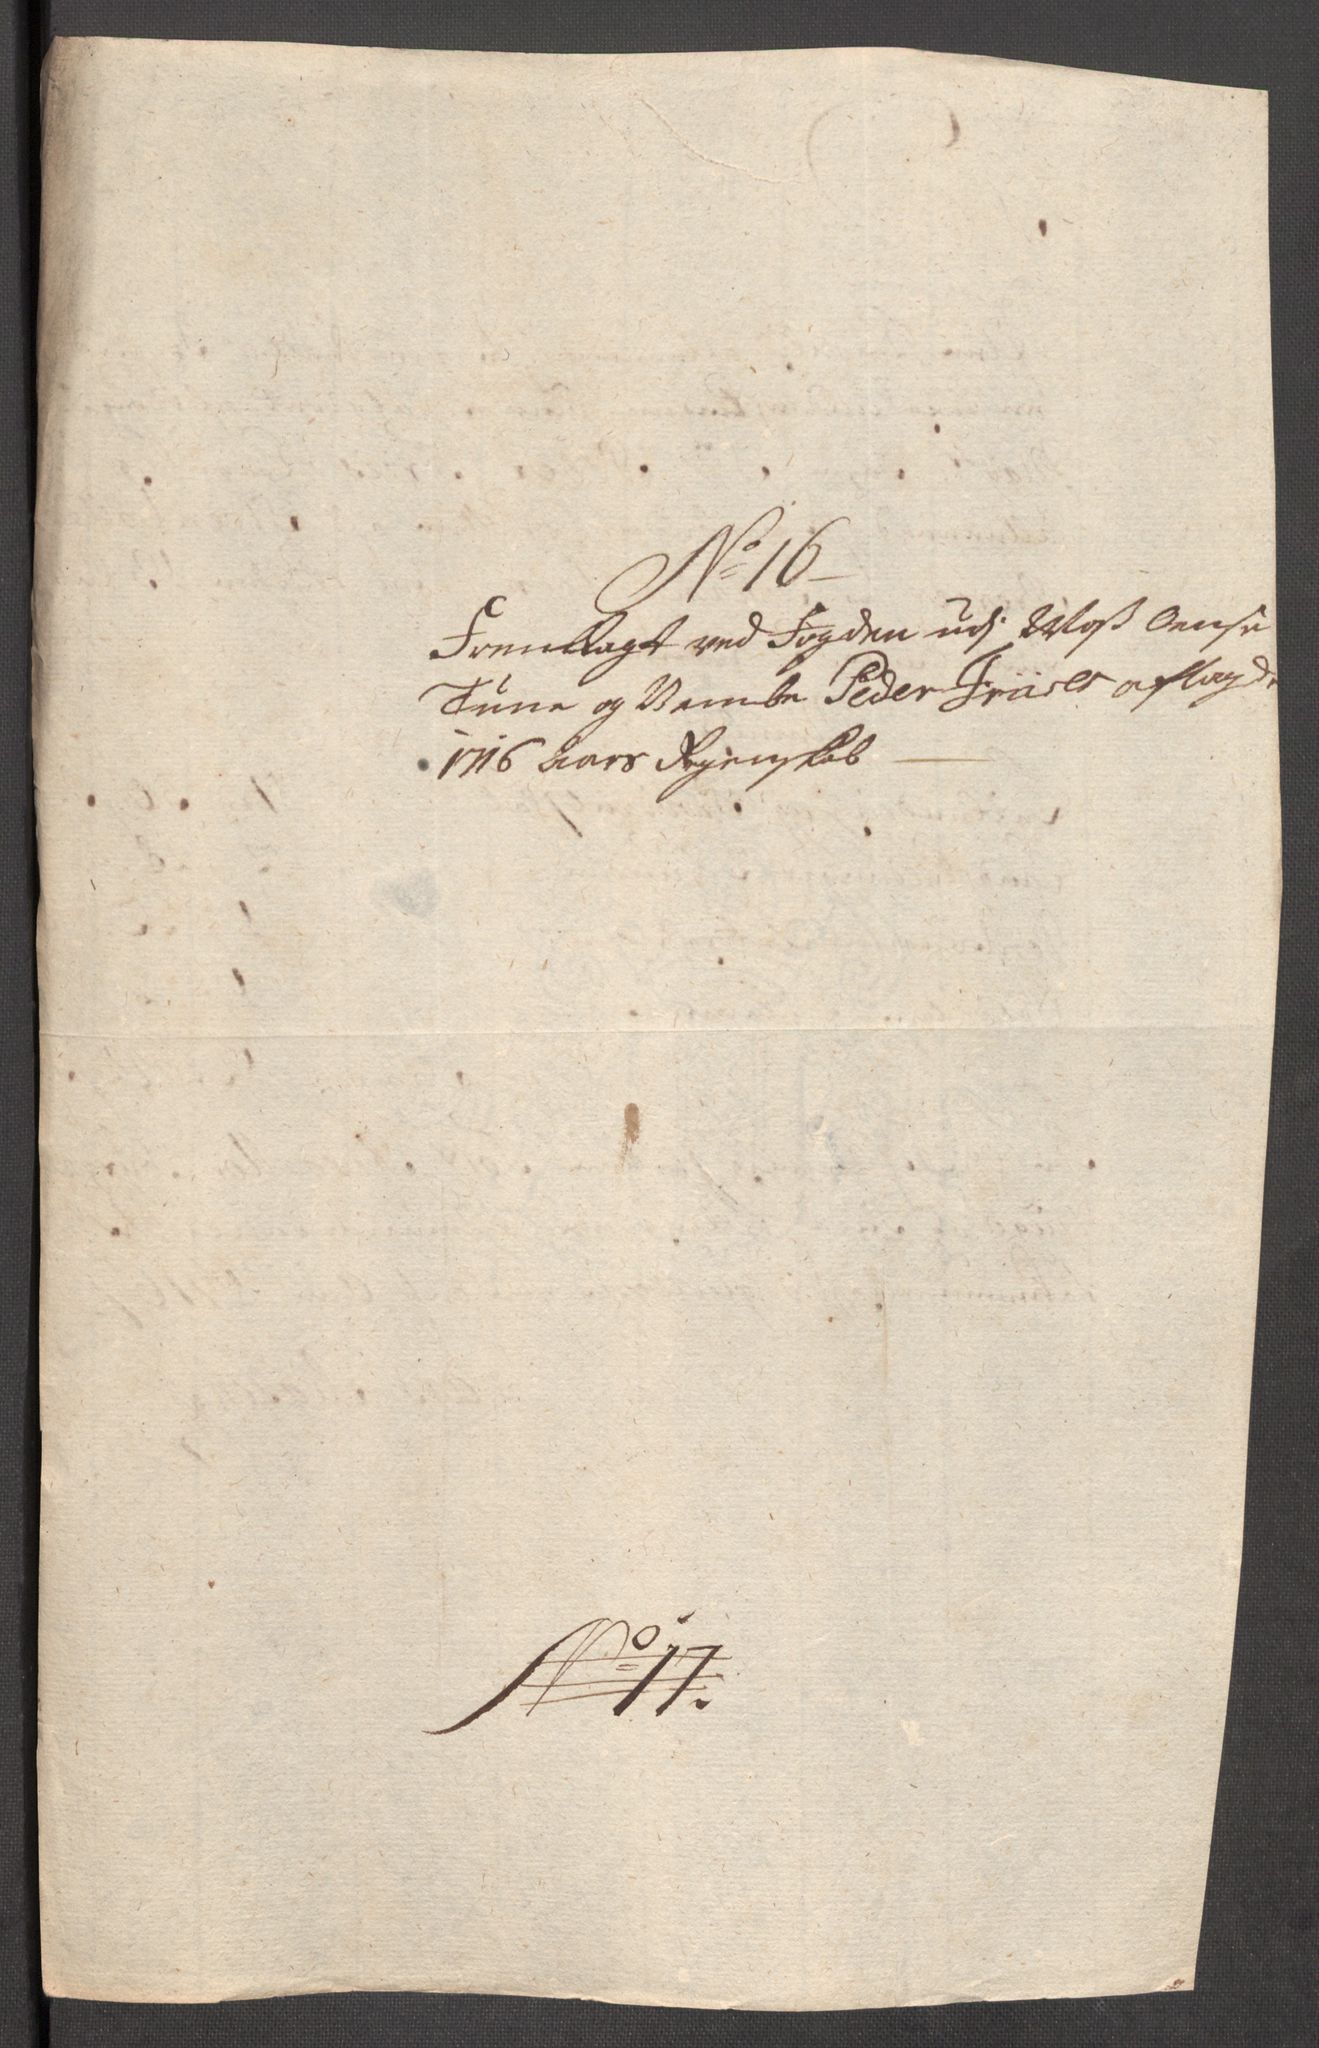 No 16
Fremlagt ved Fogden udj Moss Oensø
Tune og Vembe Peder Friises aflagde
1716 Aars Regenskab
No 17.